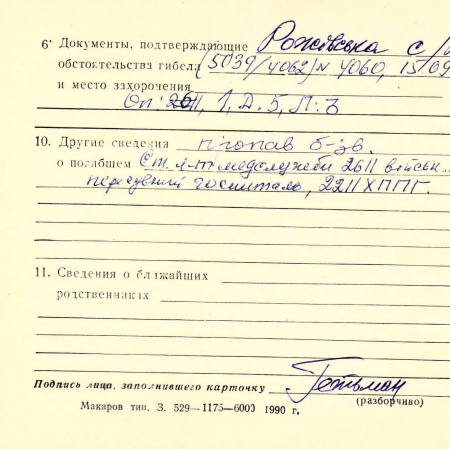 6. Документы, подтверждающие Рожівська с/
обстоятельства гибели (5039/4062) № 4060, 15/09
и место захоронения
Оп: 2611, 1, Д. 5, Л. Ъ
10. Другие сведения пропав б-зв.
о погибшем Ст. л-т медслужеби 2611 військ
пересувний госпиталь, 2211 ХППГ.
11. Сведения о ближайших
родственниках
Подпись лица, заполнившего карточку Гетьман
(разборчиво)
Макаров тип. З. 529—1175—6000 1990 г.